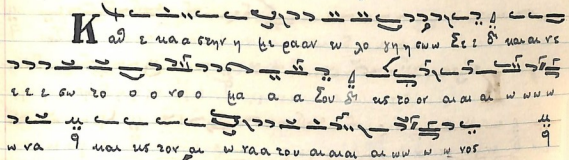 Καθ ε κα α στην η με ρα αν ευ λο γη η σω ω σε ε ε δι και αι νε
ε ε ε σω το ο ο νο ο μα α α α σου δι εις το ον αι αι αι ω ω ω ω
ω να q και εις τον αι ω να α του αι αι αι αι ω ω ω ω ω νος q